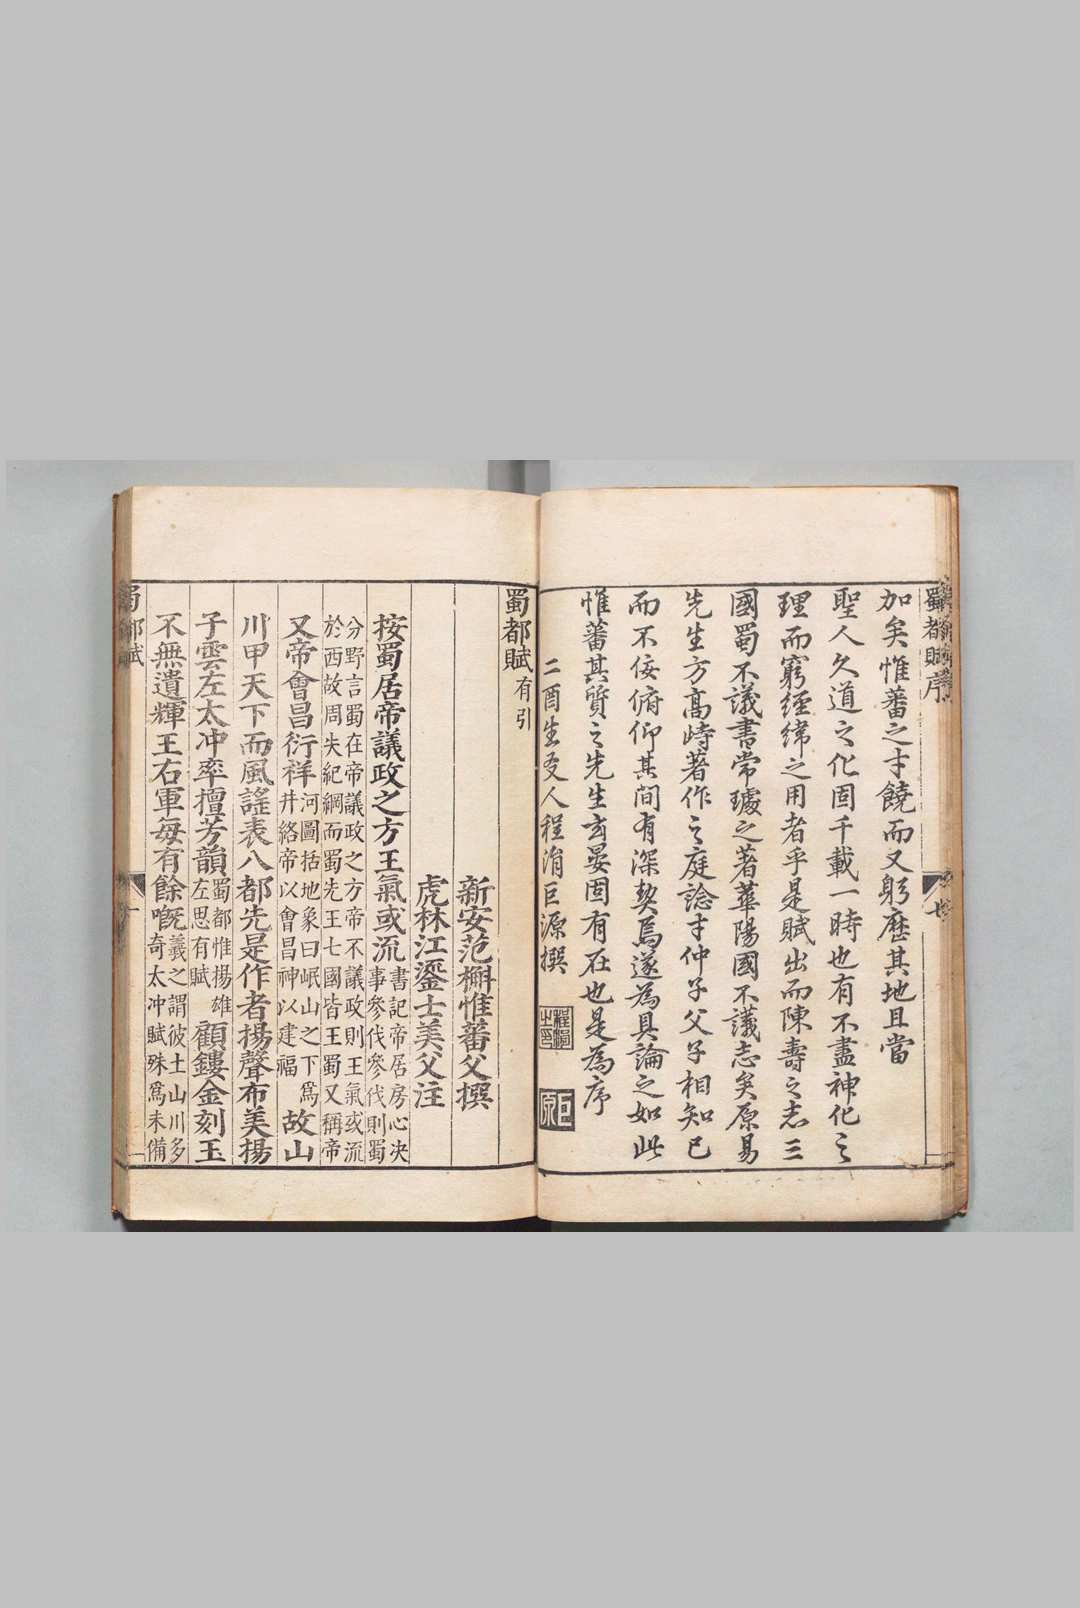 蜀都賦序
加矣惟蕃之才饒而又躬歷其地且當
聖人久道之化固千載一時也有不盡神化之
理而窮經緯之用者乎是賦出而陳壽之志三
國蜀不議書常璩之著華陽國不議志矣原易
先生方高峙著作之庭諗才仲子父子相知已
而不佞俯仰其間有深契焉遂為具論之如此
惟蕃其質之先生玄晏固有在也是為序
二酉生友人程涓巨源撰
程涓
之印
巨
原
蜀都賦有引
新安范檞惟蕃父撰
虎林江鎏士美父注
按蜀居帝議政之方王氣或流書記帝居房心決
事參伐參伐則蜀
分野言蜀在帝議政之方帝不議政則王氣或流
於西故周失紀綱而蜀先王七國皆王蜀又稱帝
又帝會昌衍祥河圖括地象曰岷山之下為
井絡帝以會昌神以建福故山
川甲天下而風謠表八都先是作者揚聲布美揚
子雲左太冲率擅芳韻蜀都惟揚雄
左思有賦顧鏤金刻玉
不無遺輝王右軍每有餘嘅羲之謂彼土山川多
奇太冲賦殊為未備
蜀都賦